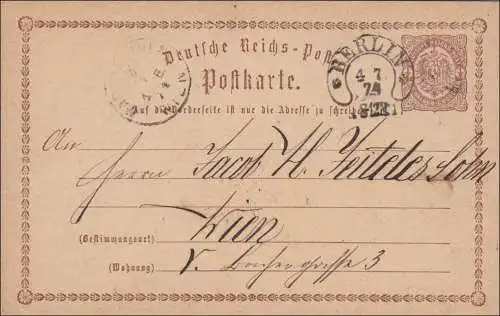 Deutsche Reichs-Post
Postkarte.
BERLIN
4 7
74
Auf der Vorderseite ist nur die Adresse zu schreiben
An
Herrn Jacob H. Jeiteles Sohn
(Bestimmungsort) Wien
(Wohnung) V. 3